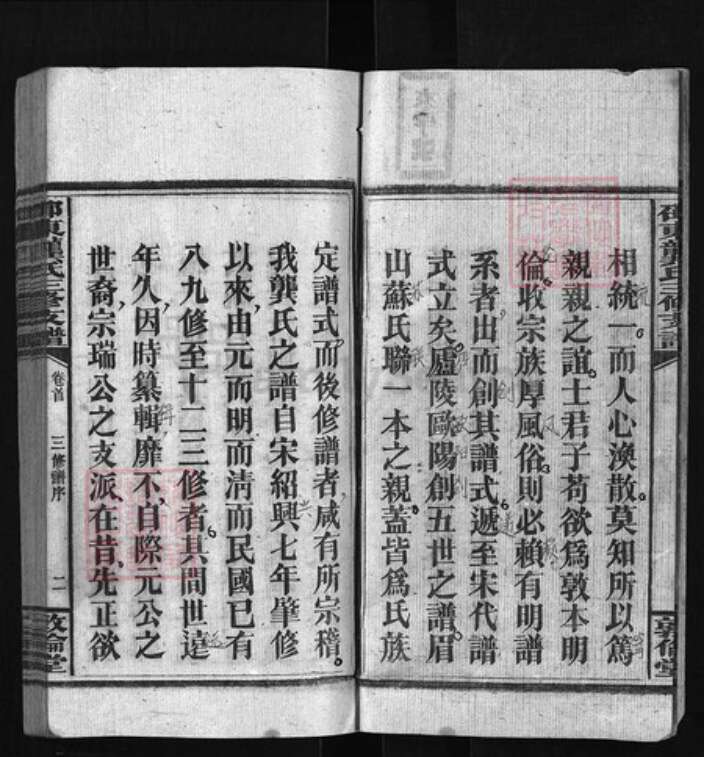 相統一而人心渙散。莫知所以篤
親親之誼。士君子苟欲爲敦本明
倫。收宗族厚風俗。則必賴有明譜
系者。出而創其譜式。遞至宋代譜
式立矣。廬陵歐陽創五世之譜。眉
山蘇氏聯一本之親。蓋皆爲氏族
定譜式。而後修譜者。咸有所宗稽。
我龔氏之譜自宋紹興七年肇修
以來。由元而明而淸而民國已有
八九修至十二三修者。其間世遠
年久。因時纂輯。靡不自際元公之
世裔。宗瑞公之支派。在昔先正欲
邵東龔氏三修支譜
卷首
三修譜序
二
敦倫堂